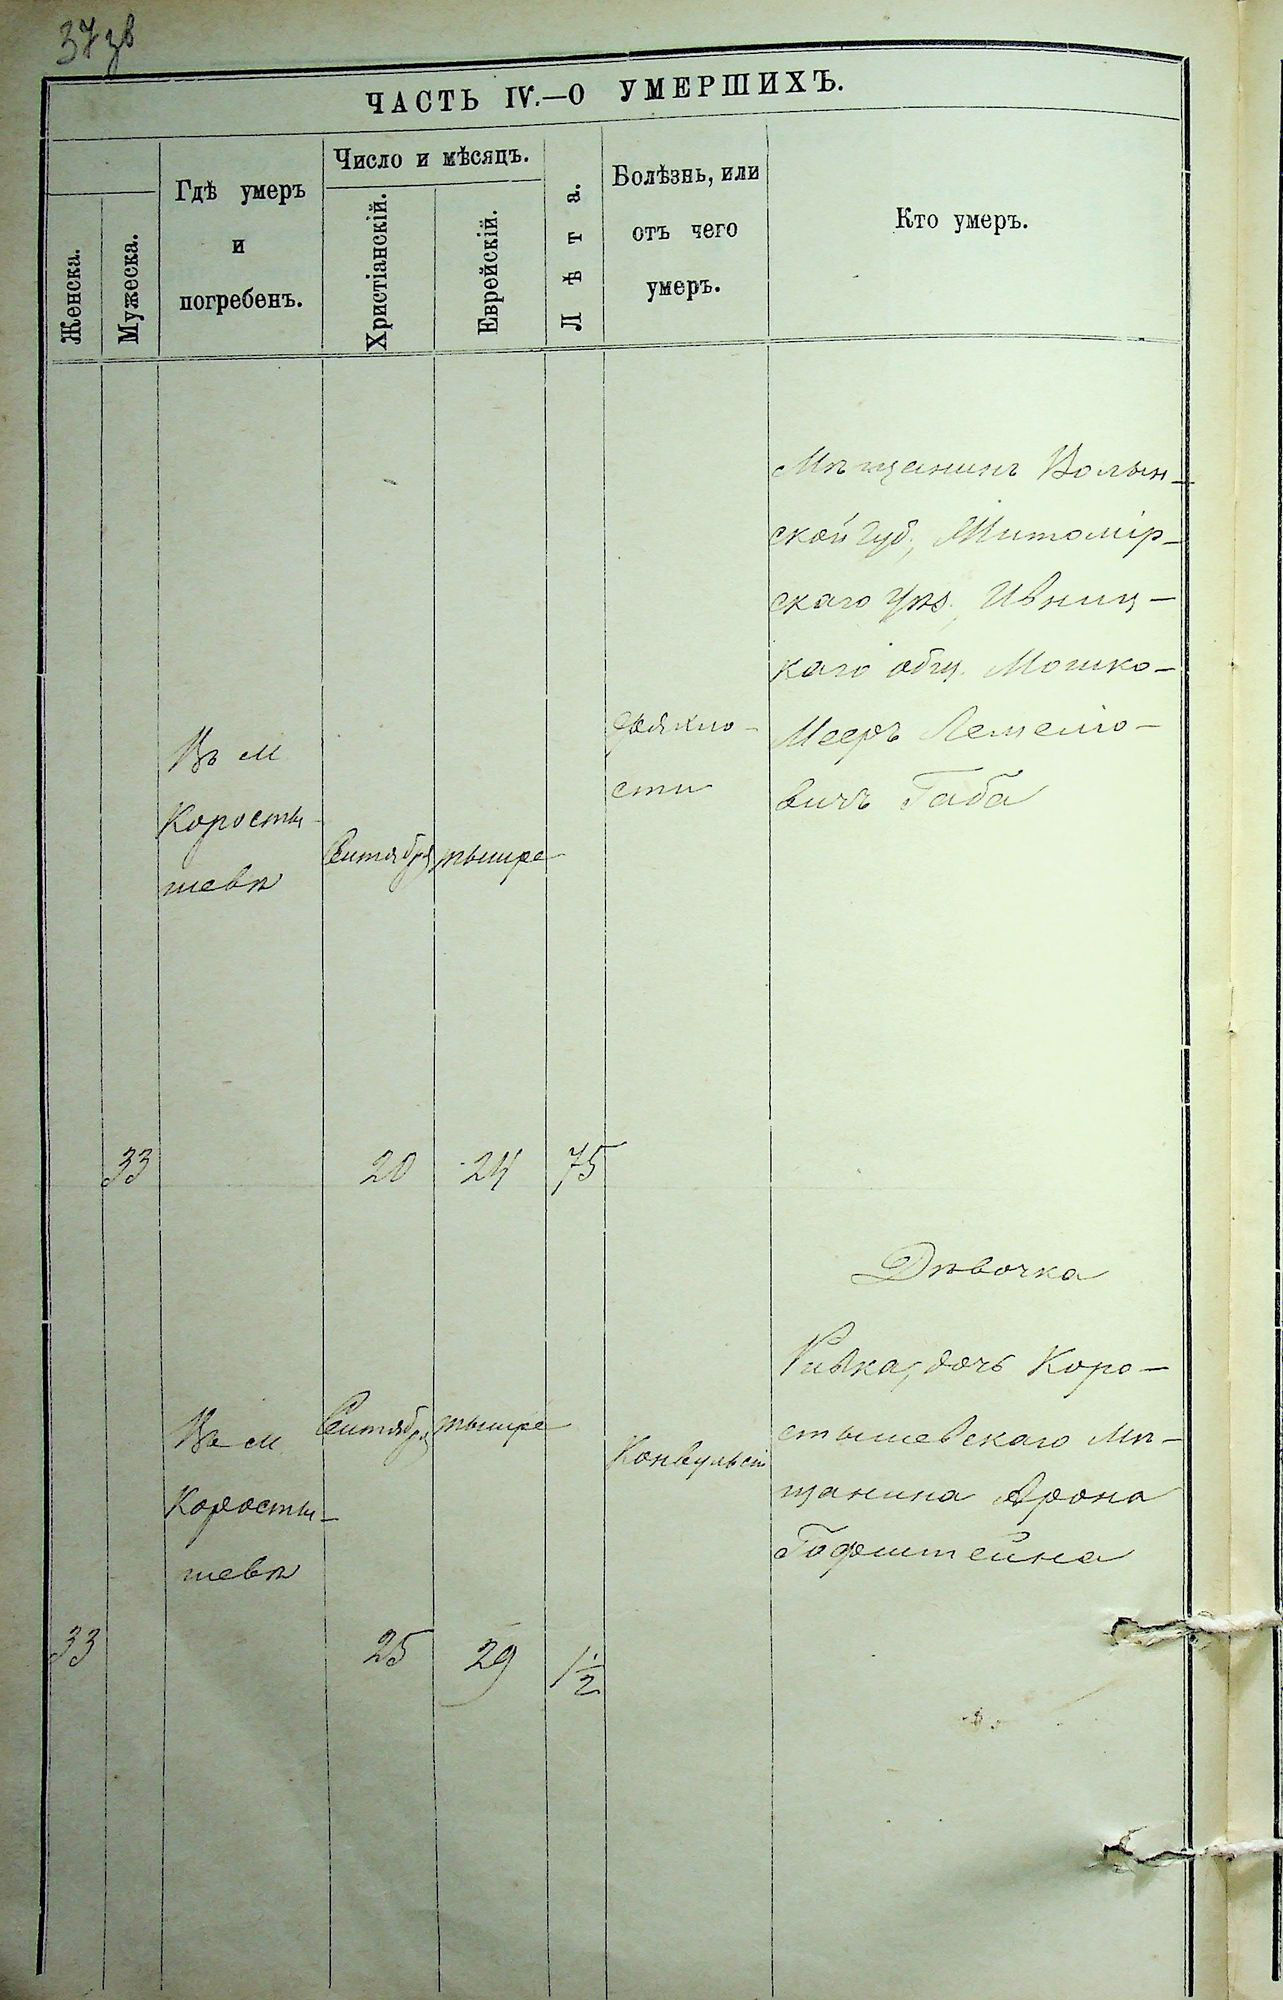 37 зв
ЧАСТЬ IV.—О УМЕРШИХЪ.
Женска.
Мужеска.
Гдѣ умеръ
и
погребенъ.
Число и мѣсяцъ.
Христіанскій.
Еврейскій.
Лѣта.
Болѣзнь, или
отъ чего
умеръ.
Кто умеръ.
33
Въ м
Коросты-
шевѣ
Сентября
20
тышре
24
75
Дряхло-
сти
Мѣщанинъ Волын-
ской губ., Житомір-
скаго уѣз., Ивниц-
каго общ. Мошко-
Мееръ
вичъ Габа
33
Въ м
Коросты-
шевѣ
Сентября
25
тышре
29
1 1/2
Конвульсіи
Дѣвочка
Ривка, дочь Коро-
стышевскаго мѣ-
щанина Арона
Гофштейна